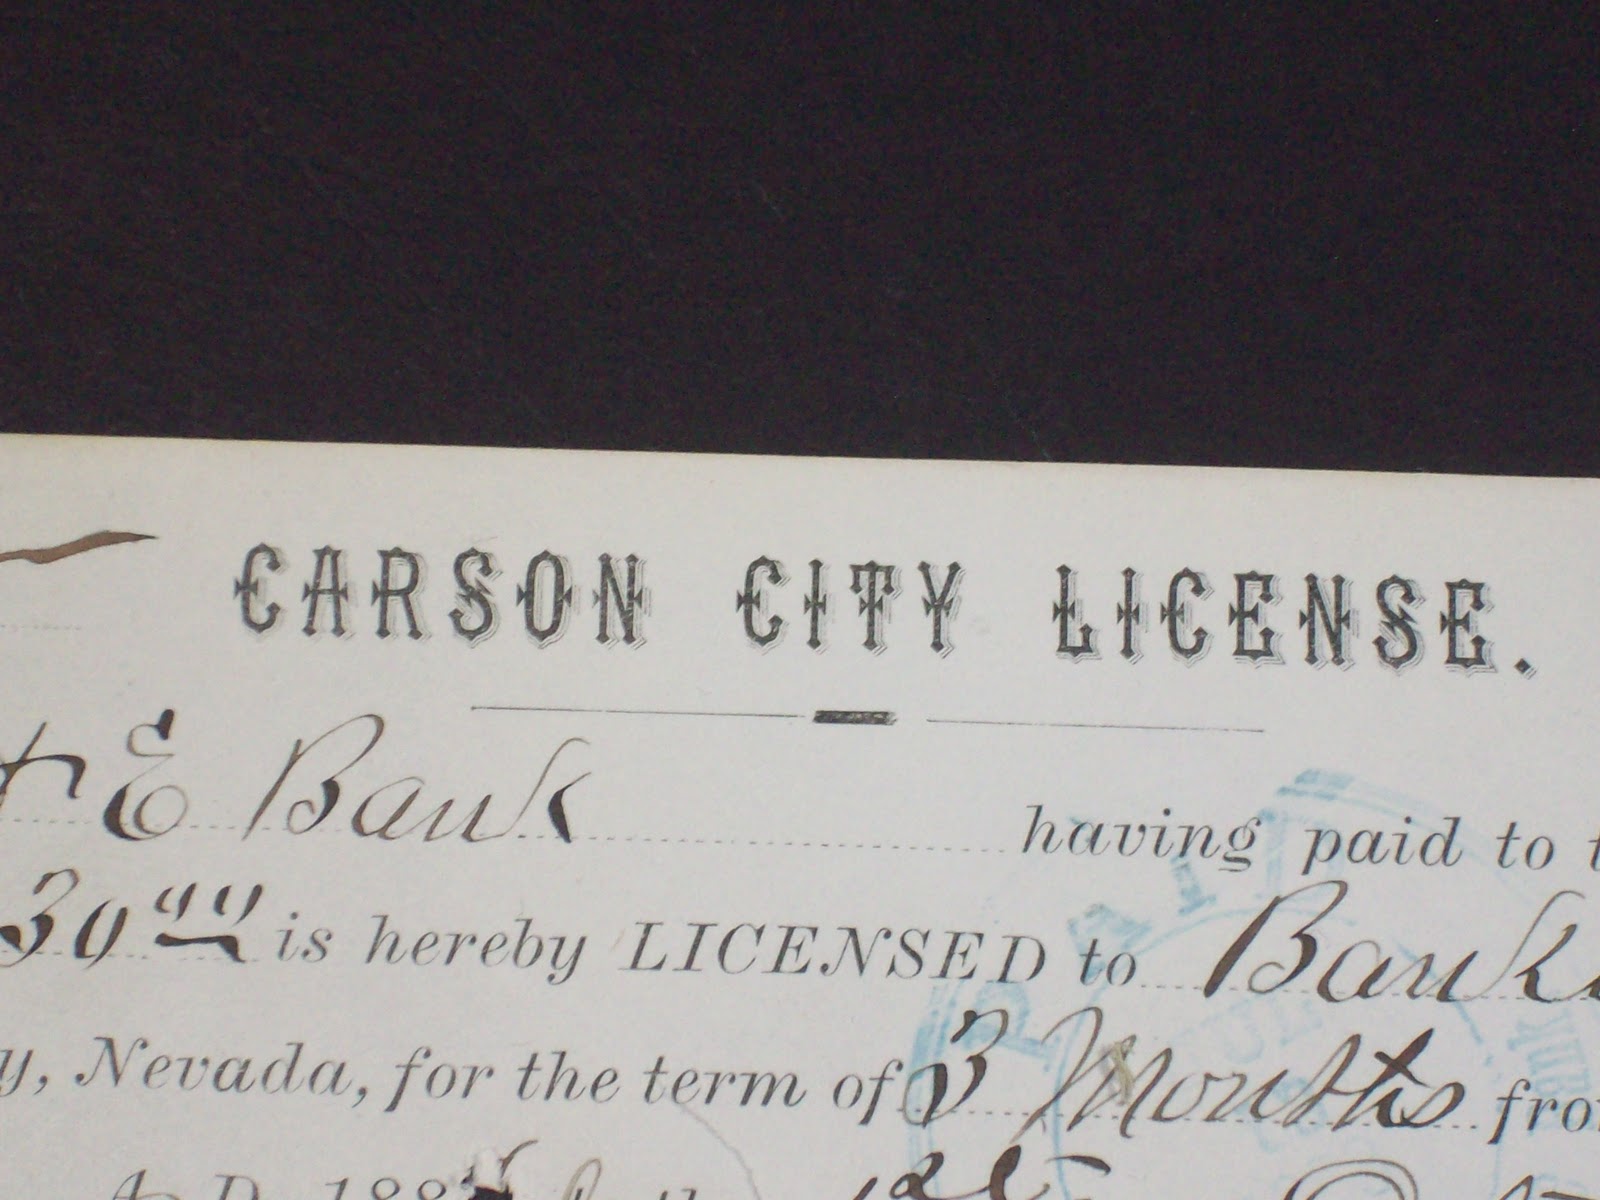 CARSON CITY LICENSE.
E Bank having paid to
30 00 is hereby LICENSED to Bank
y, Nevada, for the term of 3 Months fro
A. D. 188